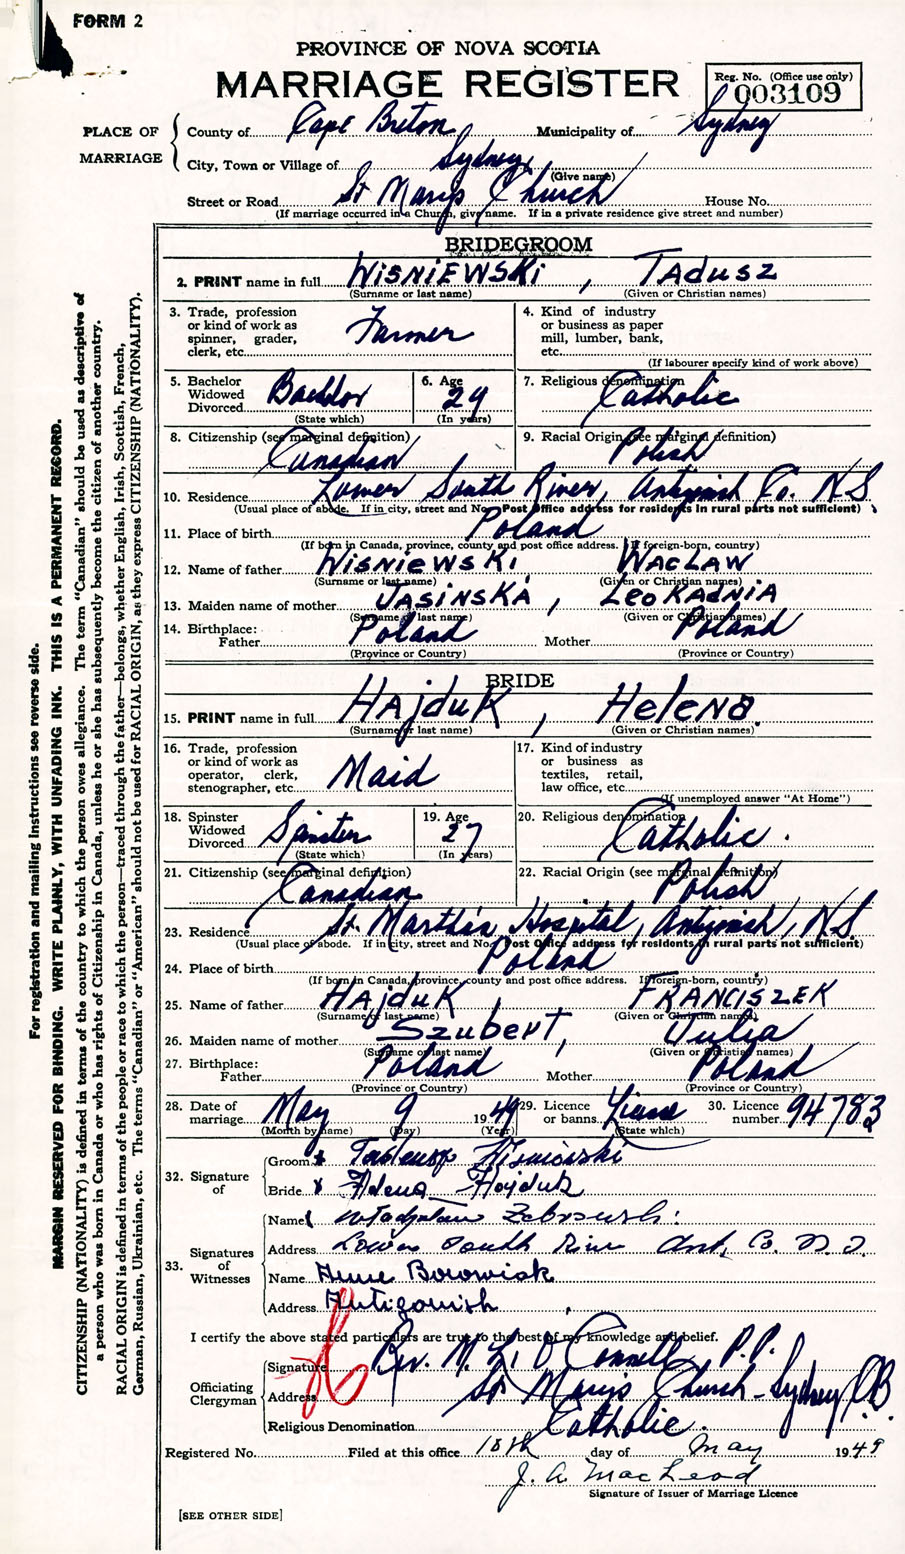 FORM 2
PROVINCE OF NOVA SCOTIA
MARRIAGE REGISTER
Reg. No. (Office use only)
003109
PLACE OF MARRIAGE
County of Cape Breton Municipality of Sydney
City, Town or Village of Sydney
(Give name)
Street or Road St Marys Church House No.
(If marriage occurred in a Church, give name. If in a private residence give street and number)
BRIDEGROOM
2. PRINT name in full WISNIEWSKI, TADUSZ
(Surname or last name) (Given or Christian names)
3. Trade, profession or kind of work as spinner, grader, clerk, etc. Farmer
4. Kind of industry or business as paper mill, lumber, bank, etc.
(If labourer specify kind of work above)
5. Bachelor Widowed Divorced Bachlor
(State which)
6. Age 29
(In years)
7. Religious denomination Catholic
8. Citizenship (see marginal definition) Canadian
9. Racial Origin (see marginal definition) Polish
10. Residence Lower South River, Antigonish Co. N.S
(Usual place of abode. If in city, street and No. Post Office address for residents in rural parts not sufficient)
11. Place of birth Poland
(If born in Canada, province, county and post office address. If foreign-born, country)
12. Name of father WISNIEWSKI, WACLAW
(Surname or last name) (Given or Christian names)
13. Maiden name of mother JASINSKA, LEOKADNIA
(Surname or last name) (Given or Christian names)
14. Birthplace: Father Poland Mother Poland
(Province or Country) (Province or Country)
BRIDE
15. PRINT name in full HAJduK, HELENA.
(Surname or last name) (Given or Christian names)
16. Trade, profession or kind of work as operator, clerk, stenographer, etc. Maid
17. Kind of industry or business as textiles, retail, law office, etc.
(If unemployed answer "At Home")
18. Spinster Widowed Divorced Spinster
(State which)
19. Age 27
(In years)
20. Religious denomination Catholic.
21. Citizenship (see marginal definition) Canadian
22. Racial Origin (see marginal definition) Polish
23. Residence St. Martha's Hospital, Antigonish, N.S
(Usual place of abode. If in city, street and No. Post Office address for residents in rural parts not sufficient)
24. Place of birth Poland
(If born in Canada, province, county and post office address. If foreign-born, country)
25. Name of father HAJDUK, FRANCISZEK
(Surname or last name) (Given or Christian names)
26. Maiden name of mother SZUBERT, Julia
(Surname or last name) (Given or Christian names)
27. Birthplace: Father Poland Mother Poland
(Province or Country) (Province or Country)
28. Date of marriage May 9 1949
(Month by name) (Day) (Year)
29. Licence or banns License
(State which)
30. Licence number 94783
32. Signature of
Groom x Tadeusz Wisniewski
Bride x Helena Hajduk
33. Signatures of Witnesses
Name Zebrowski
Address Lower South River Ant. Co. N.S.
Name Anne Borowiak
Address Antigonish
I certify the above stated particulars are true to the best of my knowledge and belief.
Officiating Clergyman
Signature Rev. M. O'Connell, P.P.
Address St Mary's Church - Sydney C.B.
Religious Denomination Catholic.
Registered No. Filed at this office 10th day of May 1949
J. A. MacLeod
Signature of Issuer of Marriage Licence
[SEE OTHER SIDE]
For registration and mailing instructions see reverse side.
MARGIN RESERVED FOR BINDING. WRITE PLAINLY, WITH UNFADING INK. THIS IS A PERMANENT RECORD.
CITIZENSHIP (NATIONALITY) is defined in terms of the country to which the person owes allegiance. The term "Canadian" should be used as descriptive of
a person who was born in Canada or who has rights of Citizenship in Canada, unless he or she has subsequently become the citizen of another country.
RACIAL ORIGIN is defined in terms of the people or race to which the person—traced through the father—belongs, whether English, Irish, Scottish, French,
German, Russian, Ukrainian, etc. The terms "Canadian" or "American" should not be used for RACIAL ORIGIN, as they express CITIZENSHIP (NATIONALITY).